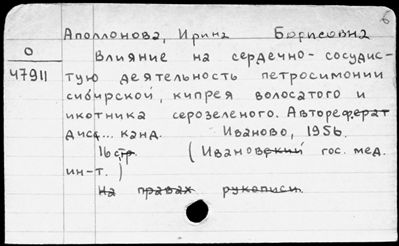 б
Аполлонова, Ирина Борисовна
О
47911
Влияние на сердечно-сосудис-
тую деятельность петросимонии
сибирской, кипрея волосатого и
икотника серозеленого. Автореферат
дисс... канд. Иваново, 1956.
16 стр. (Ивановский гос. мед.
ин-т.)
На правах рукописи.